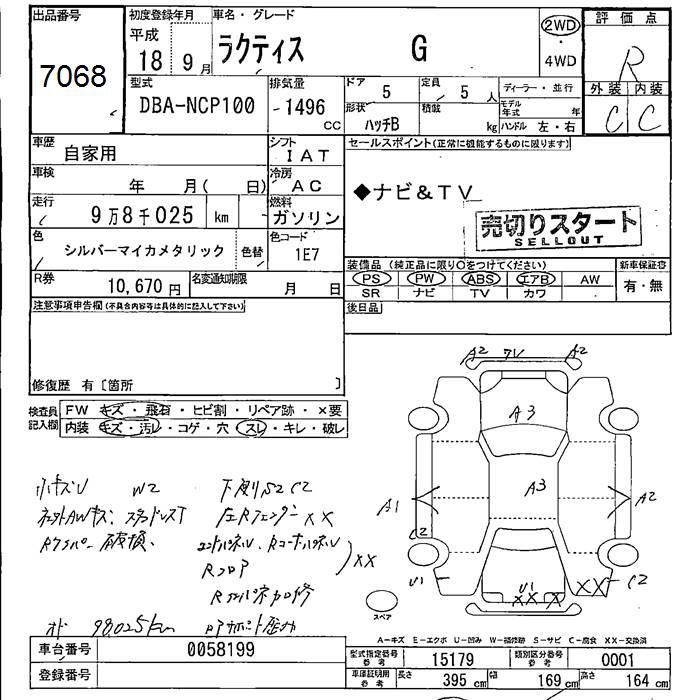 出品番号 初度登録年月 車名・グレード 評価点
7068 平成 18 9月 ラクティス G 2WD ・ 4WD R
型式 排気量 ドア 定員 ディーラー・並行 外装 内装
DBA-NCP100 1496 cc 5 5人 モデル年式 年 C C
形状 積載
ハッチB kg ハンドル 左・右
車歴 自家用 シフト IAT セールスポイント(正常に機能するものに限ります)
車検 年 月( 日) 冷房 AC ◆ナビ&TV
走行 9万8千025 km 燃料 ガソリン 売切りスタート
SELLOUT
色 シルバーマイカメタリック 色替 色コード 1E7
装備品(純正品に限り○をつけてください) 新車保証書
R券 10,670円 名変通知期限 月 日 PS PW ABS エアB AW 有・無
SR ナビ TV カワ
注意事項申告欄(不具合内容等は具体的に記入して下さい) 後日品
修復歴 有〔箇所 〕
A2 A2
検査員記入欄 FW キズ・飛石・ヒビ割・リペア跡・×要
内装 キズ・汚レ・コゲ・穴・スレ・キレ・破レ
A3
A3
A1 A2
小キズU W2 下廻りS2 C2
XX
C2
XX
U1 U1 XX C2
XX X
スペア
オド 98025km
A-キズ E-エクボ U-凹み W-補修跡 S-サビ C-腐食 XX-交換済
車台番号 0058199 型式指定番号 参考 15179 類別区分番号 参考 0001
登録番号 車庫証明用 参考 長さ 395 cm 幅 169 cm 高さ 164 cm